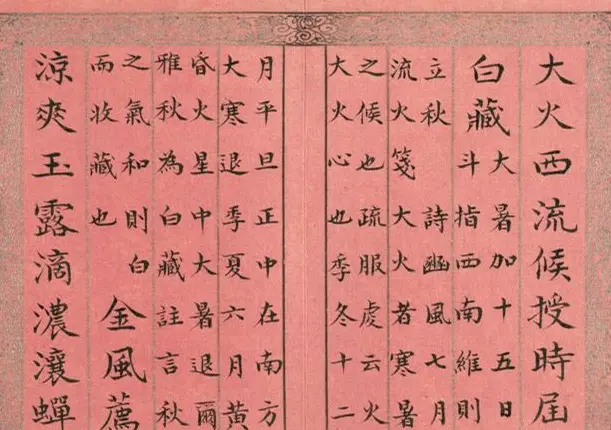 大火西流候授時屆
白藏
大暑加十五日
斗指西南維則
立秋 詩豳風七月
流火箋大火者寒暑
之候也疏服虔云火
大火心也季冬十二
月平旦正中在南方
大寒退季夏六月黃
昏火星中大暑退爾
雅秋為白藏註言秋
之氣和則白
而收藏也
金風薦
涼爽玉露滴濃瀼蟬